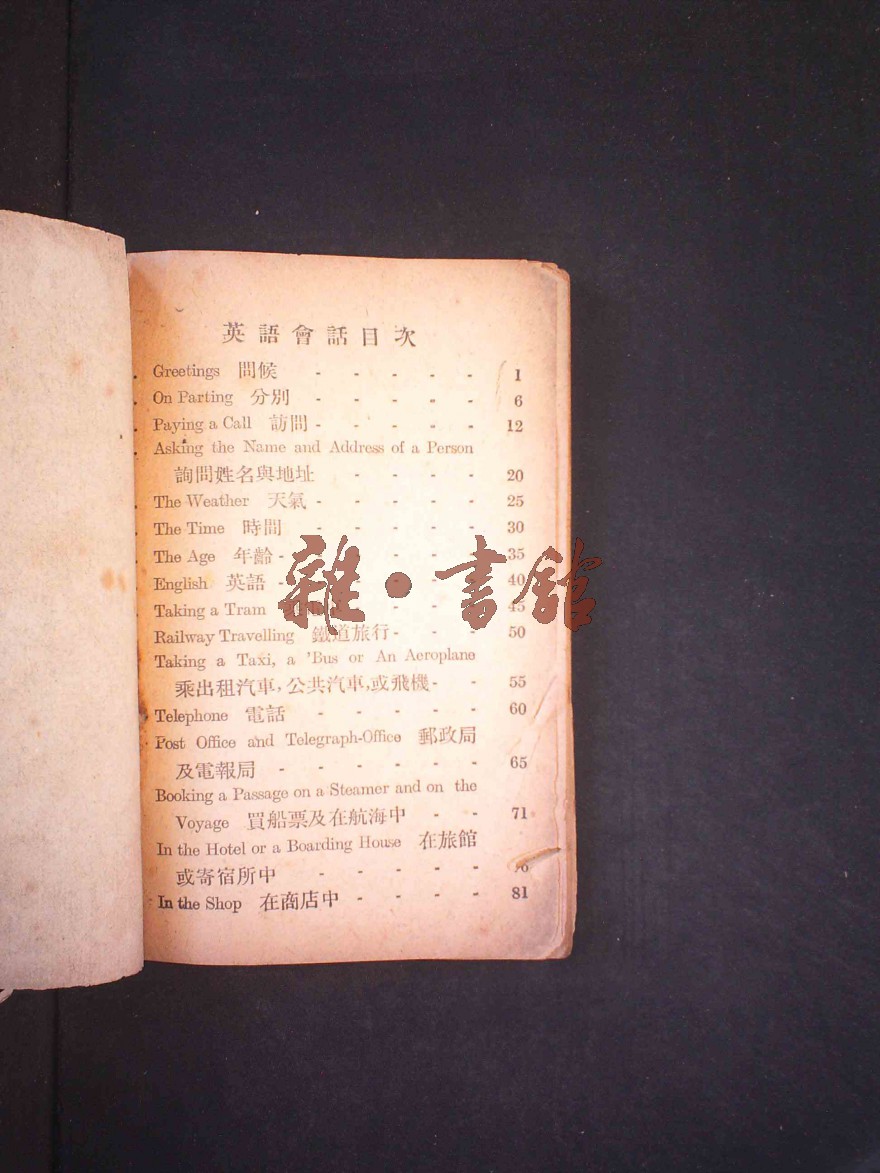 英語會話目次
Greetings 問候 - - - - - 1
On Parting 分別 - - - - - 6
Paying a Call 訪問 - - - - - 12
Asking the Name and Address of a Person
詢問姓名與地址 - - - - 20
The Weather 天氣 - - - - - 25
The Time 時間 - - - - - 30
The Age 年齡 - - - - - 35
English 英語 - - - - - 40
Taking a Tram - - - 45
Railway Travelling 鐵道旅行 - - - 50
Taking a Taxi, a 'Bus or An Aeroplane
乘出租汽車,公共汽車,或飛機 - - 55
Telephone 電話 - - - - - 60
Post Office and Telegraph-Office 郵政局
及電報局 - - - - - - 65
Booking a Passage on a Steamer and on the
Voyage 買船票及在航海中 - - 71
In the Hotel or a Boarding House 在旅館
或寄宿所中 - - - - -
In the Shop 在商店中 - - - - 81
雜·書館